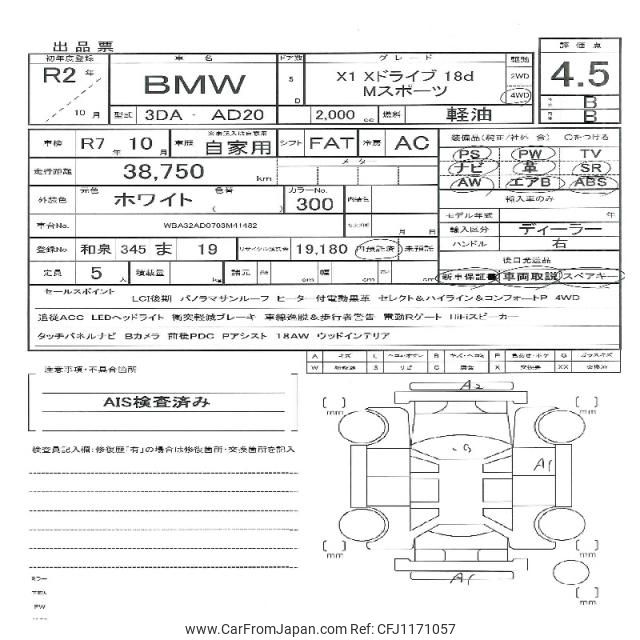 出品票
初年度登録 車名 ドア数 グレード 駆動 評価点
R2 年 10 月
BMW
5 D
X1 Xドライブ 18d
Mスポーツ
2WD
4WD
4.5
B
B
型式 3DA - AD20 2,000 cc 燃料 軽油
車検 R7 年 10 月 車歴 自家用 シフト FAT 冷房 AC
装備品(純正/社外 含) ○をつける
PS PW TV
ナビ 革 SR
AW エアB ABS
走行距離 38,750 km メーター
外装色 元色 ホワイト 色替 ( ) カラーNo. 300
輸入車のみ
モデル年式 年
車台No. WBA32AD0703M41482 月 日
輸入区分 ディーラー
ハンドル 右
登録No 和泉 345 ま 19 リサイクル預託金 19,180 預託済 未預託
後日発送品
定員 5 人 積載量 kg 諸元 長 cm 幅 cm 高 cm
新車保証書 車両取説 スペアキー
セールスポイント
LCI後期 パノラマサンルーフ ヒーター付電動黒革 セレクト&ハイライン&コンフォートP 4WD
追従ACC LEDヘッドライト 衝突軽減ブレーキ 車線逸脱&歩行者警告 電動Rゲート HiFiスピーカー
タッチパネルナビ Bカメラ 前後PDC Pアシスト 18AW ウッドインテリア
注意事項・不具合箇所
AIS検査済み
検査員記入欄:修復歴「有」の場合は修復箇所・交換箇所を記入
A2
A1
A1
[ ] mm
[ ] mm
[ ] mm
[ ] mm
PW
www.CarFromJapan.com Ref: CFJ1171057